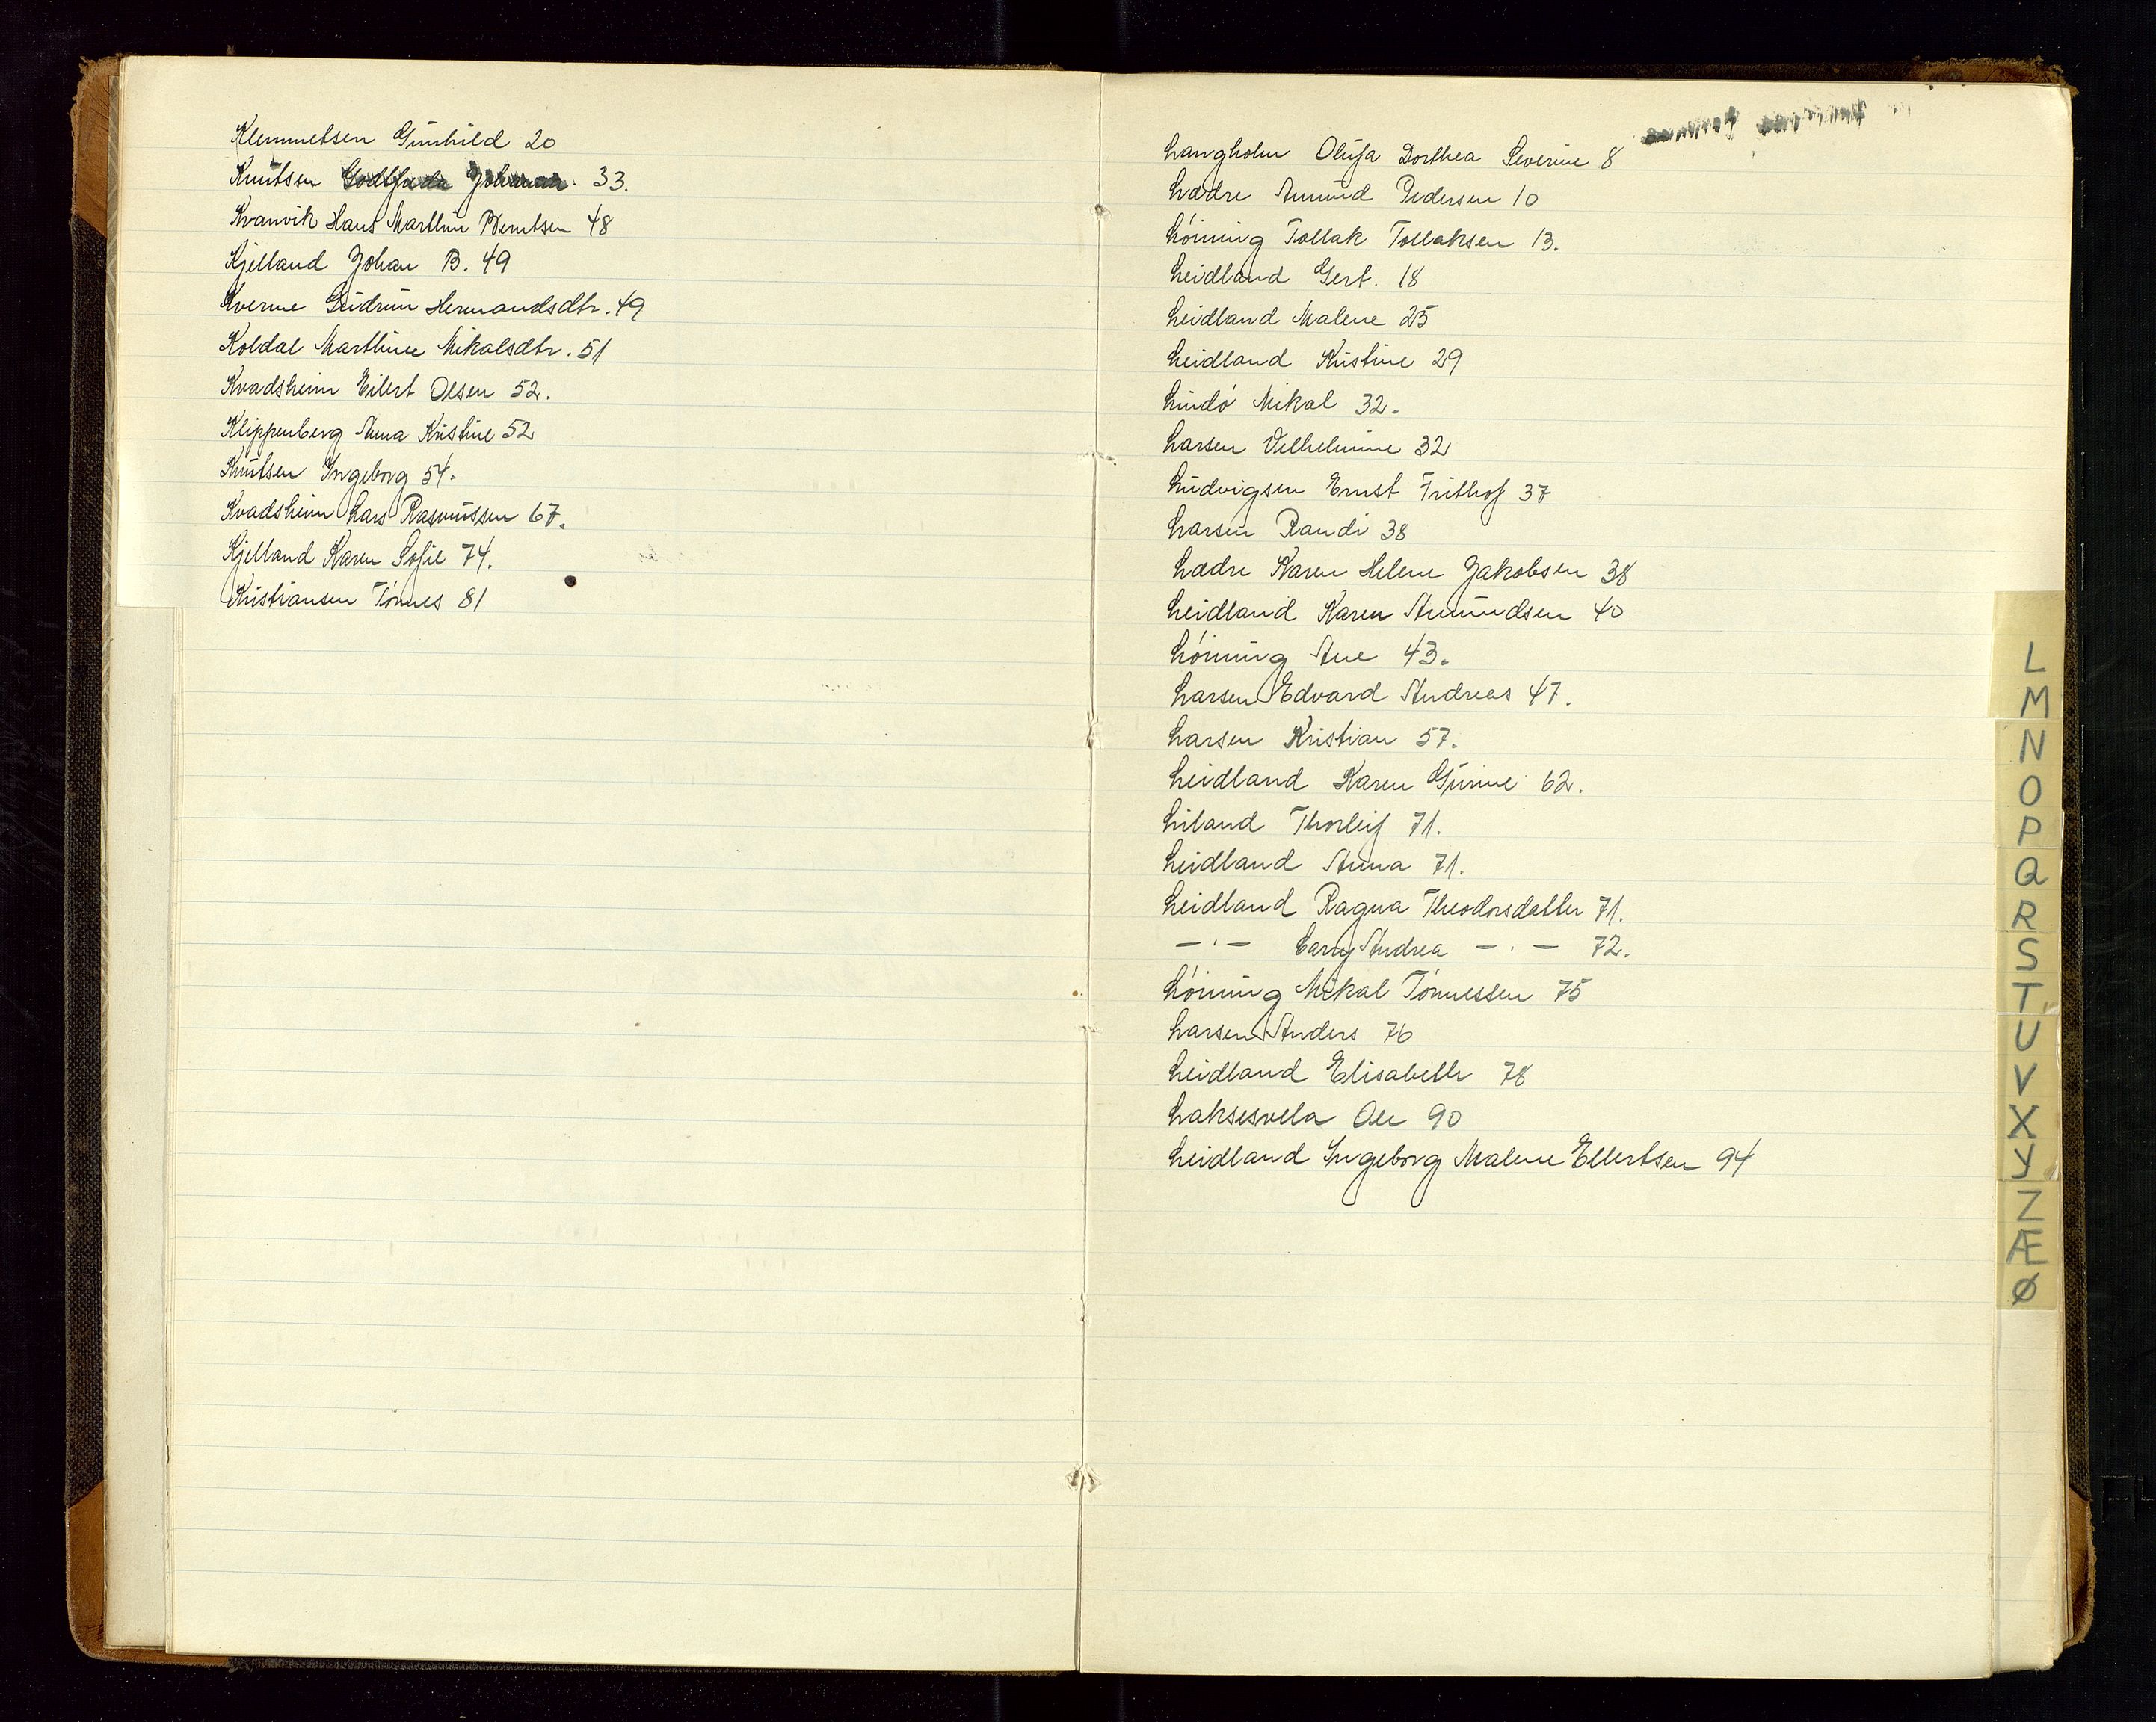 Klemmetsen Gunhild 20
Knutsen Godtfreda Johanne. 33.
Kvanvik Hans Marthin Berntsen 48
Kjelland Johan B. 49
Kverme Gudrun Hermandsdtr. 49
Koldal Marthine Mikalsdtr. 51
Kvadsheim Eilert Olsen 52.
Klippenberg Anna Kristine 52
Knutsen Ingeborg 54.
Kvadsheim Lars Rasmussen 67.
Kjelland Karen Sofie 74.
Kristiansen Tónnes 81
Langholm Olufa Dorthea Severine 8
Lædre Anund Pedersen 10
Lóining Tollak Tollaksen 13.
Leidland Gert. 18
Leidland Malene 25
Leidland Kristine 29
Lindó Mikal 32.
Larsen Vilhelmine 32
Ludvigsen Ernst Frithof 37
Larsen Randi 38
Lædre Karen Helene Jakobsen 38
Leidland Karen Amundsen 40
Lóining Ane 43.
Larsen Edvard Andreas 47.
Larsen Kristian 57.
Leidland Karen Gurine 62.
Liland Thorleif 71.
Leidland Anna 71.
Leidland Ragna Theodorsdatter 71.
—·— Carry Andrea —·— 72.
Lóining Mikal Tónnessen 75
Larsen Anders 76
Leidland Elisabeth 78
Laksesvela Ole 90
Leidland Ingeborg Malene Ellertsen 94
L
M
N
O
P
Q
R
S
T
U
V
X
Y
Z
Æ
Ø